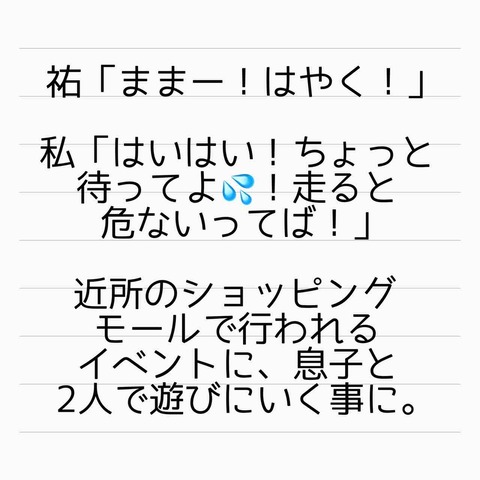 祐「ままー！はやく！」
私「はいはい！ちょっと
待ってよ💦！走ると
危ないってば！」
近所のショッピング
モールで行われる
イベントに、息子と
2人で遊びにいく事に。